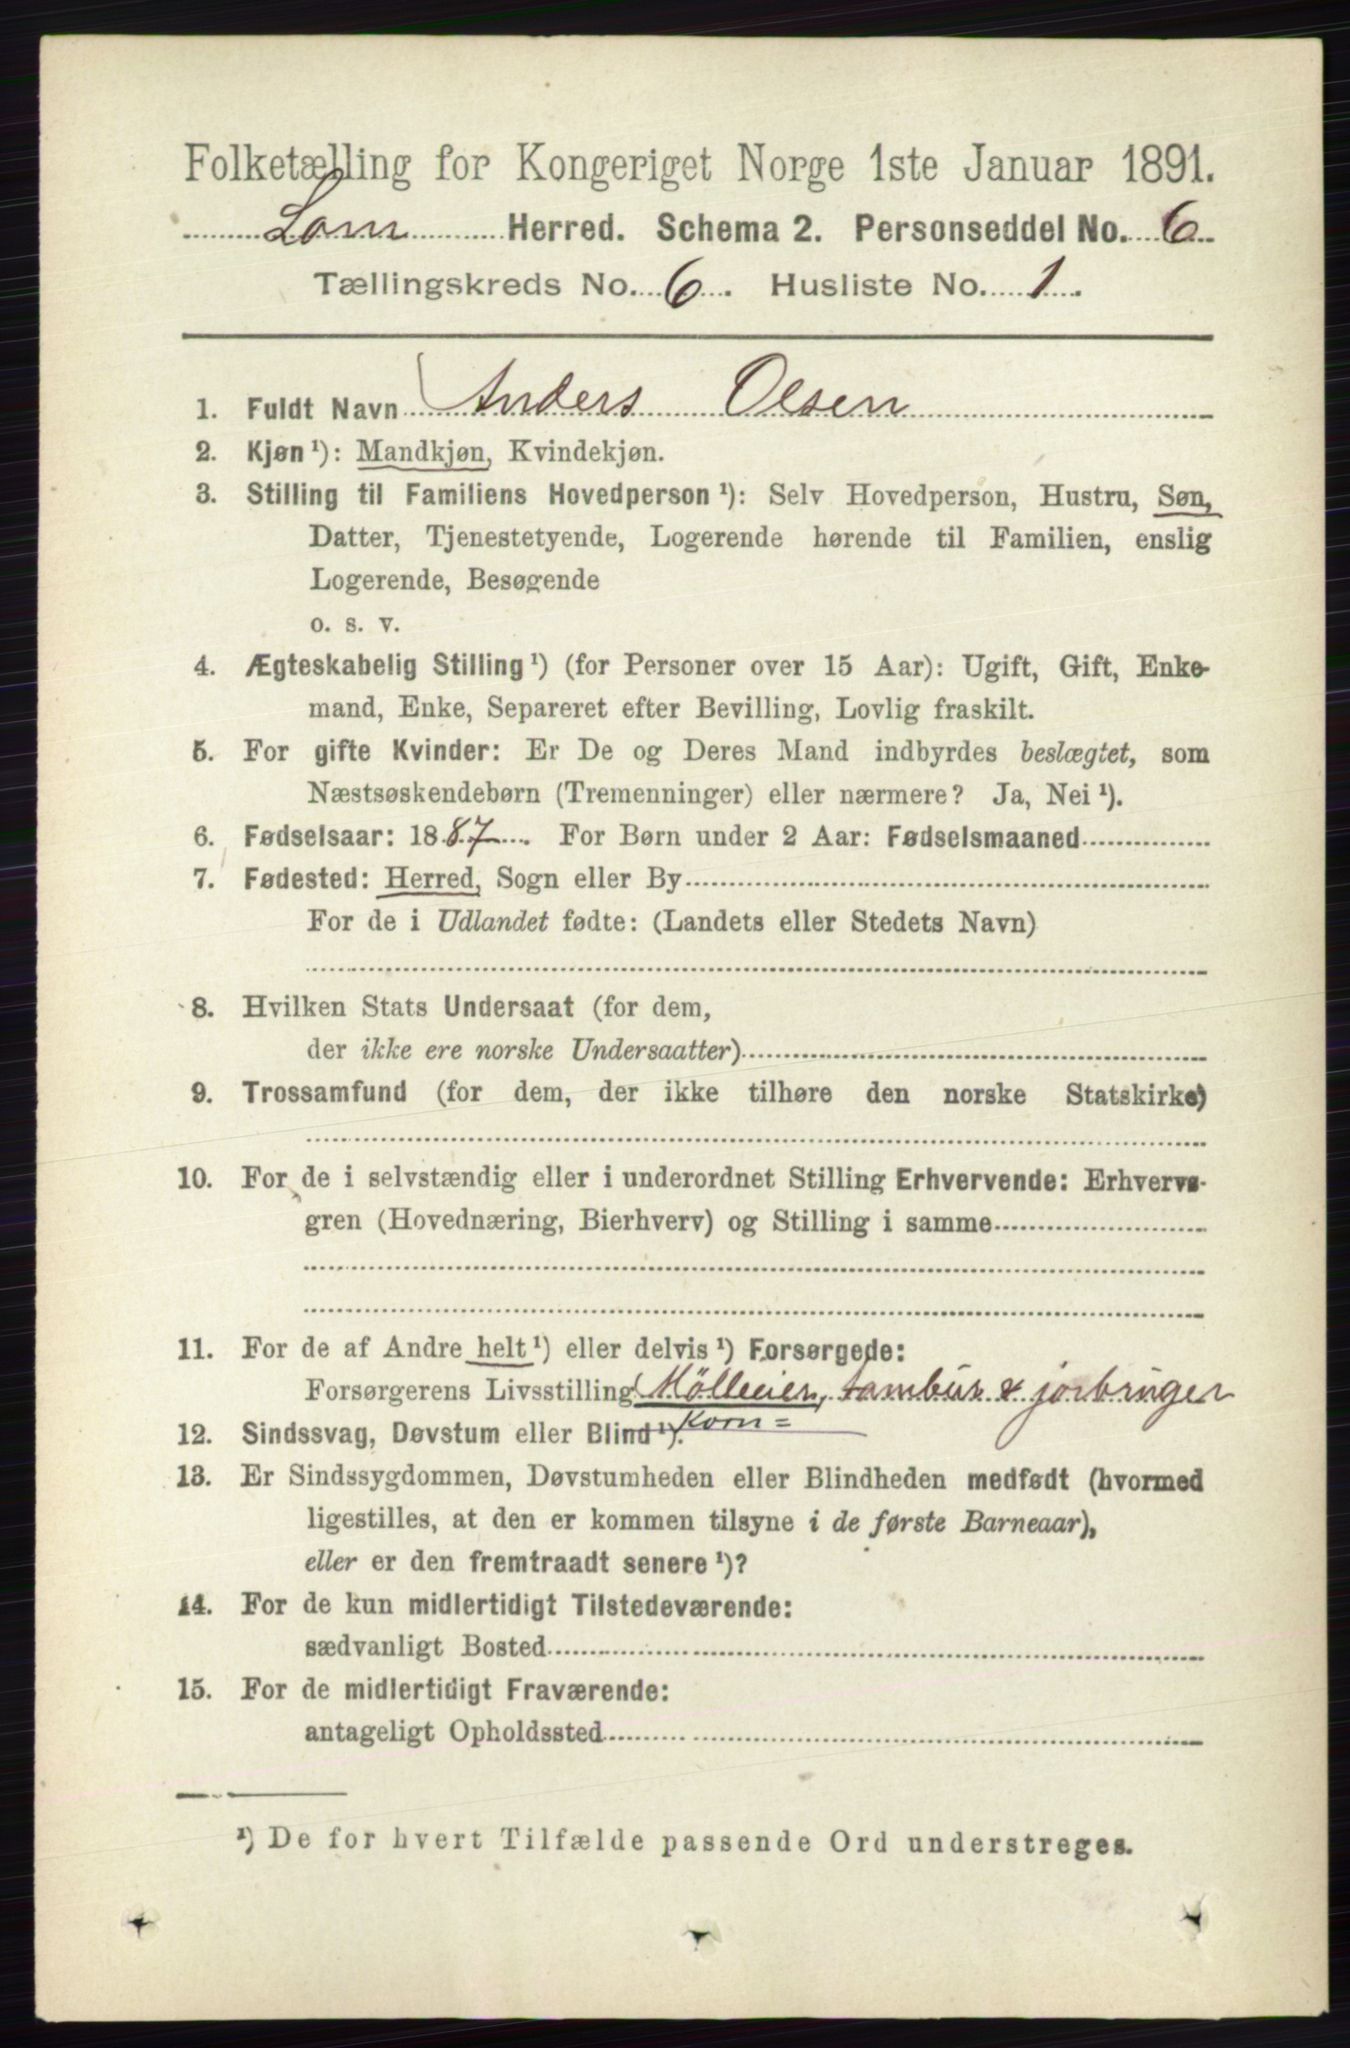 Folketælling for Kongeriget Norge 1ste Januar 1891.
Lom Herred. Schema 2. Personseddel No. 6
Tællingskreds No. 6. Husliste No. 1.
1. Fuldt Navn Anders Olsen
2. Kjøn ¹): Mandkjøn, Kvindekjøn.
3. Stilling til Familiens Hovedperson ¹): Selv Hovedperson, Hustru, Søn,
Datter, Tjenestetyende, Logerende hørende til Familien, enslig
Logerende, Besøgende
o. s. v.
4. Ægteskabelig Stilling ¹) (for Personer over 15 Aar): Ugift, Gift, Enke-
mand, Enke, Separeret efter Bevilling, Lovlig fraskilt.
5. For gifte Kvinder: Er De og Deres Mand indbyrdes beslægtet, som
Næstsøskendebørn (Tremenninger) eller nærmere? Ja, Nei ¹).
6. Fødselsaar: 1887. For Børn under 2 Aar: Fødselsmaaned
7. Fødested: Herred, Sogn eller By
For de i Udlandet fødte: (Landets eller Stedets Navn)
8. Hvilken Stats Undersaat (for dem,
der ikke ere norske Undersaatter)
9. Trossamfund (for dem, der ikke tilhøre den norske Statskirke)
10. For de i selvstændig eller i underordnet Stilling Erhvervende: Erhvervs-
gren (Hovednæring, Bierhverv) og Stilling i samme
11. For de af Andre helt ¹) eller delvis ¹) Forsørgede:
Forsørgerens Livsstilling Mölleeier, tambur & jorbruger
Korn=
12. Sindssvag, Døvstum eller Blind ¹).
13. Er Sindssygdommen, Døvstumheden eller Blindheden medfødt (hvormed
ligestilles, at den er kommen tilsyne i de første Barneaar),
eller er den fremtraadt senere ¹)?
14. For de kun midlertidigt Tilstedeværende:
sædvanligt Bosted
15. For de midlertidigt Fraværende:
antageligt Opholdssted
¹) De for hvert Tilfælde passende Ord understreges.